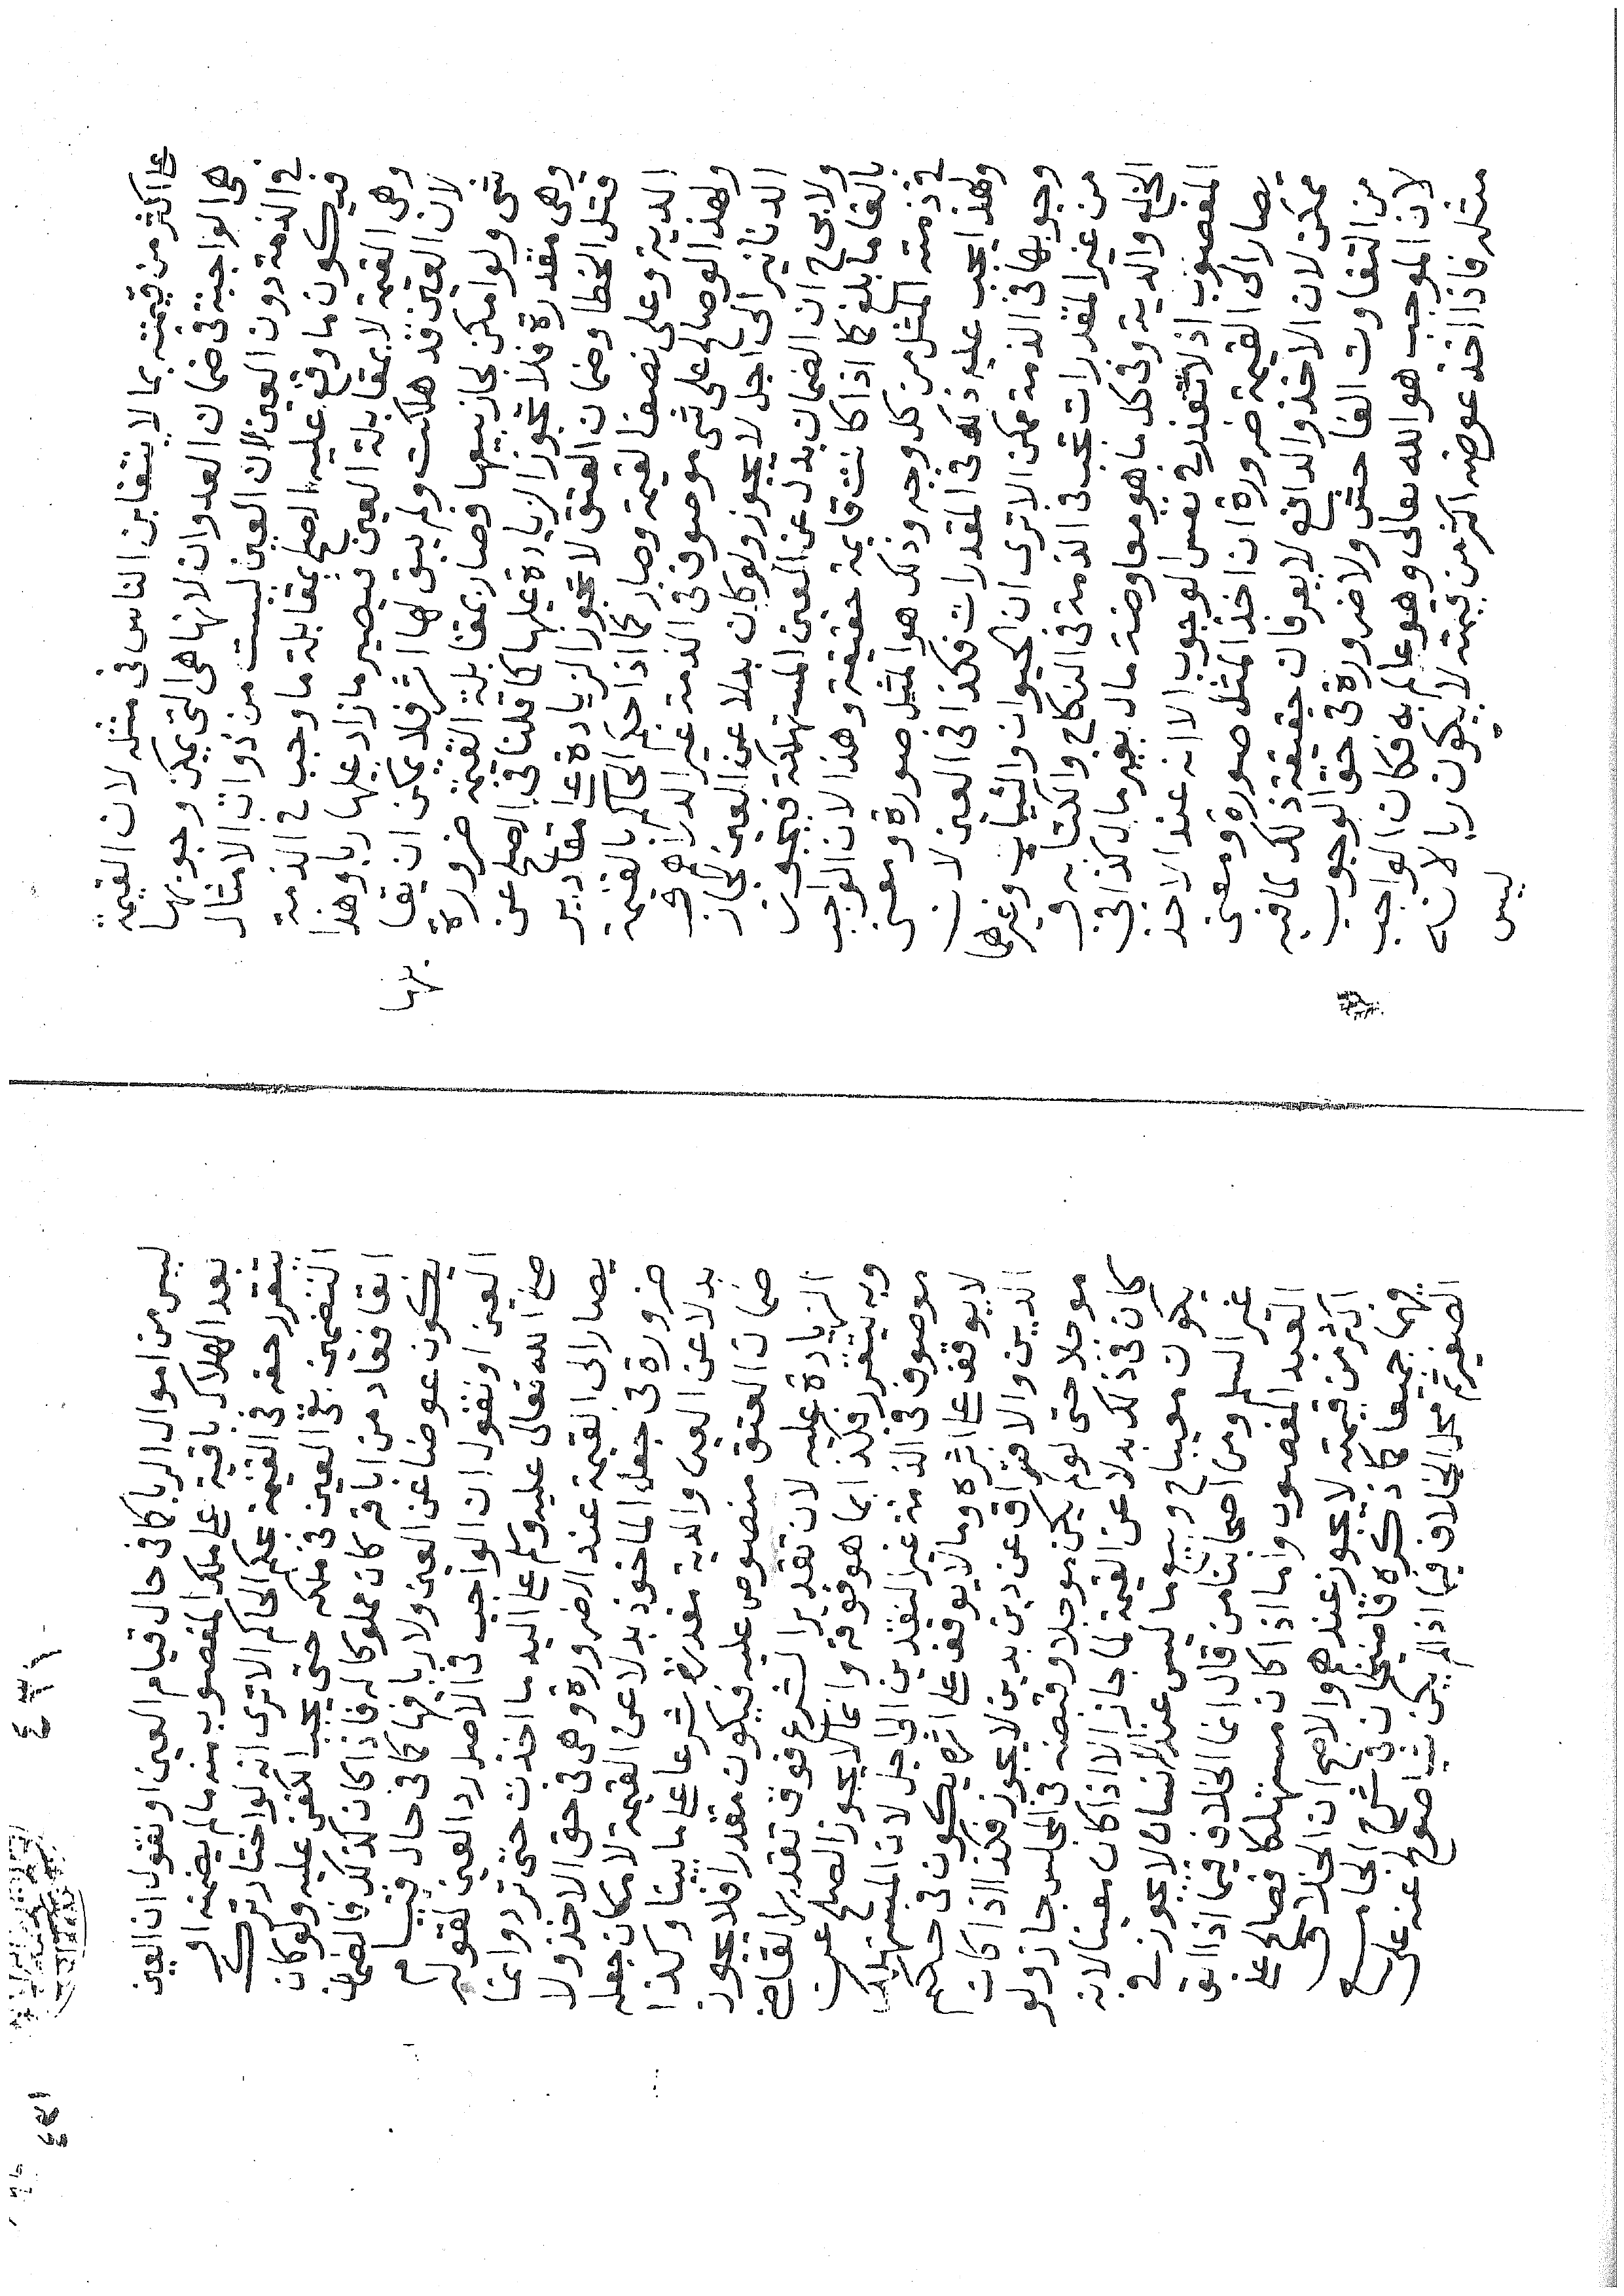 على اكثر من قيمته بما لا يتغابن الناس في مثله لان القيمة
هي الواجبة في ضمان العدوان لانها هي التي يمكن وجوبها
في الذمة دون العين لان العين ليست من ذوات الامثال
فيكون ما وقع عليه الصلح بمقابلة ما وجب في الذمة
وهي القيمة لا بمقابلة العين فيصير ما زاد عليها ربا وهذا
لان العين قد هلكت ولم يبق لها اثر فلا يمكن ان يقا
بلها
شي ولو امكن لجاز بيعها فصار بمقابلة القيمة ضرورة
وهي مقدرة فلا تجوز الزيادة عليها كما قلنا في الصلح عن
قتل الخطا وضمان العتق لا تجوز الزيادة على مقادير
الدية وعلى نصف القيمة وصار كما اذا حكم الحاكم بالقيمة
ولهذا لو صالح على شي موصوف في الذمة غير الدراهم و
الدنانير الى اجل لا يجوز ولو كان بدلا عن العين لجاز
ولابي ح ان الضمان بدل عن العين المستهلكة فيجوز
بالغا ما بلغ كما اذا كانت قايمة حقيقة وهذا لان الواجب
في ذمته المثل من كل وجه وذلك هو المثل صورة ومعنى
ولهذا يجب عليه ذلك في المقدرات فكذا في العين لان
وجوبها في الذمة ممكن الا ترى ان الحيوان والثياب وغيرها
من غير المقدرات تجب في الذمة في النكاح والكتابة و
الخلع والدية وفي كل ما هو معاوضة مال بغير مال كذا في
المغصوب اذ لا تعذر في نفس الوجوب الا انه عند الاخذ
يصار الى القيمة ضرورة ان اخذ المثل صورة ومعنى
ممكن لان الاخذ والدافع لا يعرفان حقيقة ذلك لما فيه
من التفاوت الفاحش ولا ضرورة في حق الوجوب
لان الموجب هو الله تعالى وهو عالم به فكان الواجب
مثله فاذا اخذ عوضه اكثر من قيمته لا يكون ربا لانه
ليس
ليس من اموال الربا كما في حال قيام العين او نقول ان العين
بعد الهلاك باقية على ملك المغصوب منه ما لم يضمنه او
يتقرر حقه في القيمة بحكم الحاكم الا ترى انه لو اختار ترك
التضمين بقي العين في ملكه حتى يجب الكفن عليه ولو كان
ابقا فعاد من اباقه كان مملوكا له فاذا كان كذلك فالضمان
يكون عوضا عن العين ولا ربا فيها كما في حال قيام
العين او نقول ان الواجب في الاصل رد العين لقوله
صلى الله تعالى عليه وسلم على اليد ما اخذت حتى ترد وانما
يصار الى القيمة عند الضرورة وهي في حق الاخذ ولا
ضرورة في جعل الماخوذ بدلا عن القيمة لامكان جعله
بدلا عن العين والدية مقدرة شرعا على ما بينا وكذا
ضمان العتق منصوص عليه فيكون مقدرا فلا يجوز
الزيادة عليه لان تقدير الشرع فوق تقدير القاضي
وبه يتقرر فكذا بما هو فوقه وانما لا يجوز الصلح عن
موصوف في الذمة غير النقدين الى اجل لان المستهلك
لا يوقف على اثره وما لا يوقف على اثره يكون في حكم
الدين والافتراق عن دين بدين لا يجوز فكذا اذا كان
موجلا حتى لو لم يكن موجلا وقبضه في المجلس جاز ولو
كان في ذلك بدلا عن القيمة لما جاز الا اذا كان معينا لانه
يكون مبيعا وبيع ما ليس عند الانسان لا يجوز في
غير السلم ومن اصحابنا من قال انما الخلاف فيما اذا ابق
العبد المغصوب واما اذا كان مستهلكا فصالح على
اكثر من قيمته لا يجوز عندهم والاصح ان الخلاف
فيهما جميعا كما ذكره قاضيخان في شرح الجامع
الصغير ثم محل الخلاف فيما اذا لم يكن شيا صولح عنه على